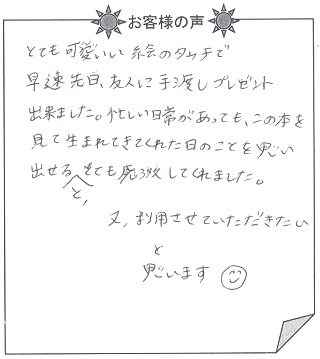 お客様の声
とても可愛いい絵のタッチで
早速先日、友人に手渡しプレゼント
出来ました。忙しい日常があっても、この本を
見て生まれてきてくれた日のことを思い
出せると、とても感激してくれました。
又、利用させていただきたい
と
思います